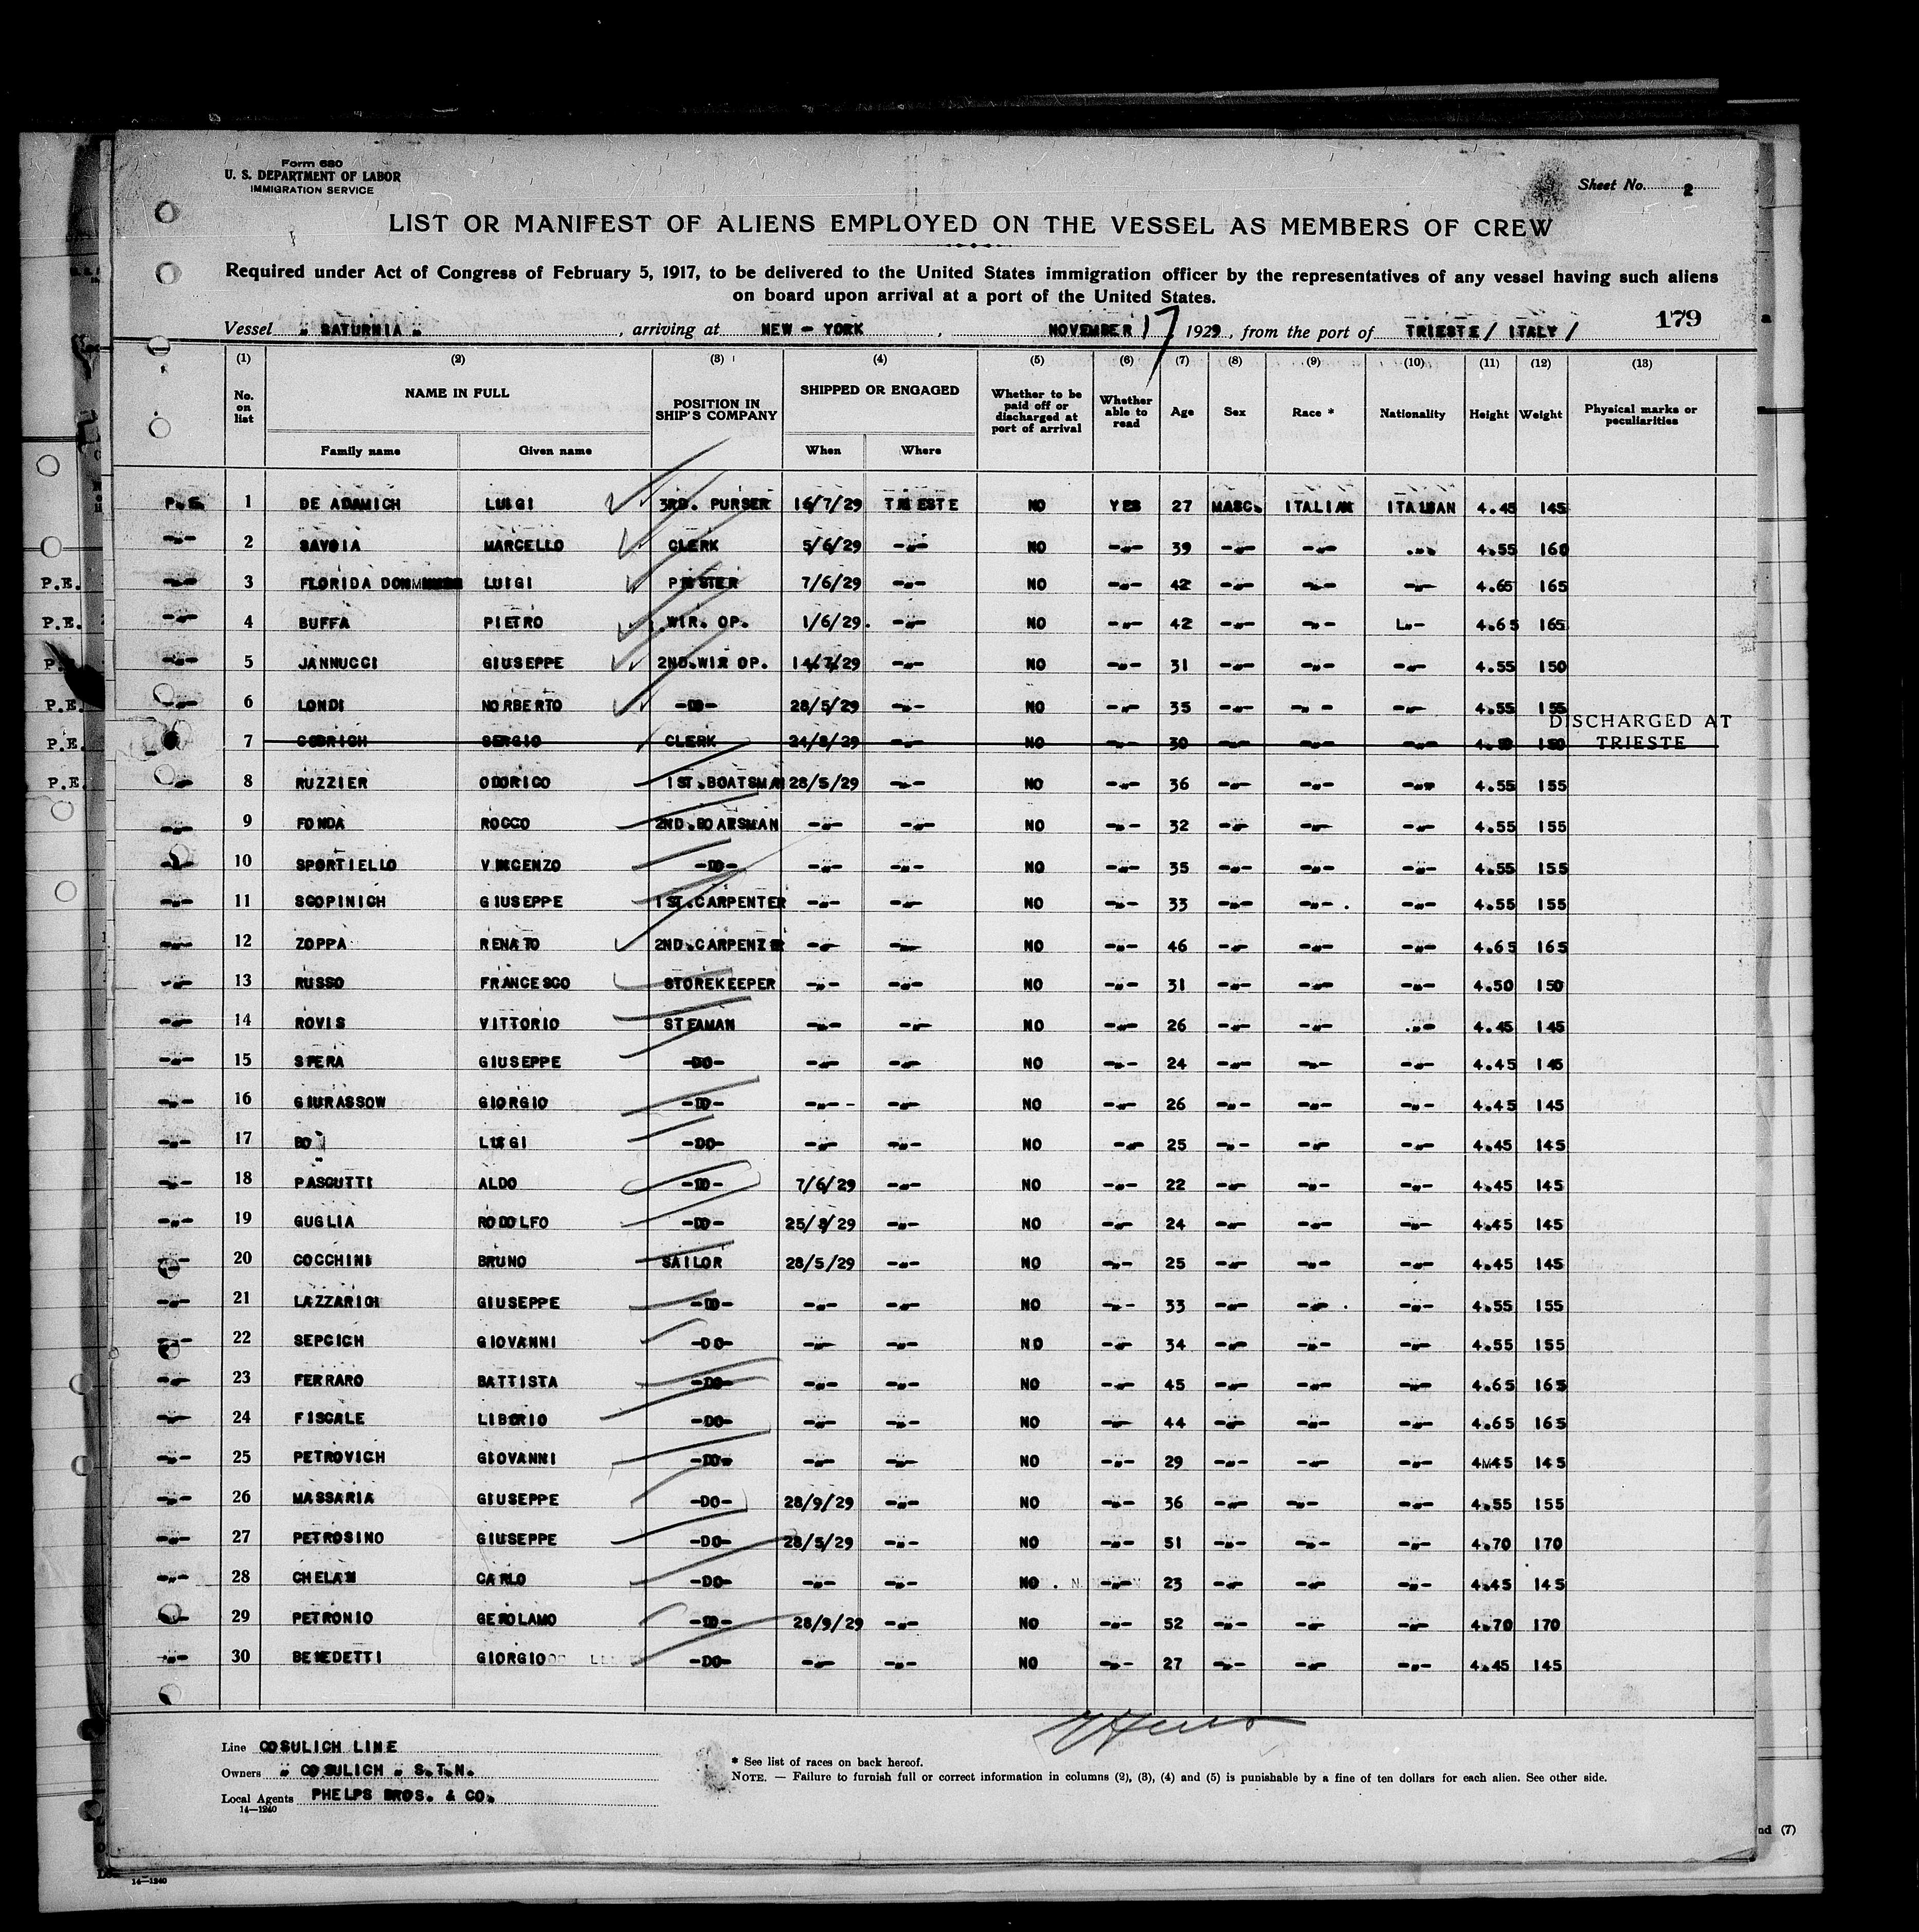 Form 680
U. S. DEPARTMENT OF LABOR
IMMIGRATION SERVICE
Sheet No. 2
LIST OR MANIFEST OF ALIENS EMPLOYED ON THE VESSEL AS MEMBERS OF CREW
Required under Act of Congress of February 5, 1917, to be delivered to the United States immigration officer by the representatives of any vessel having such aliens
on board upon arrival at a port of the United States.
179
Vessel " SATURNIA ", arriving at NEW - YORK, NOVEMBER 17 1929, from the port of TRIESTE/ ITALY/
(1) (2) (3) (4) (5) (6) (7) (8) (9) (10) (11) (12) (13)
No. on list NAME IN FULL Family name Given name POSITION IN SHIP'S COMPANY SHIPPED OR ENGAGED When Where Whether to be paid off or discharged at port of arrival Whether able to read Age Sex Race * Nationality Height Weight Physical marks or peculiarities
P.E. 1 DE ADAMICH LUIGI 3RD. PURSER 16/7/29 TRIESTE NO YES 27 MASC. ITALIAN ITALIAN 4.45 145
-"- 2 SAVOIA MARCELLO CLERK 5/6/29 -"- NO -"- 39 -"- -"- -"- 4.55 160
P.E. -"- 3 FLORIDA LUIGI 7/6/29 -"- NO -"- 42 -"- -"- -"- 4.65 165
P.E. -"- 4 BUFFA PIETRO WIR. OP. 1/6/29. -"- NO -"- 42 -"- -"- -"- 4.65 165
P. -"- 5 JANNUCCI GIUSEPPE 2ND.WIR OP. 14/7/29 -"- NO -"- 31 -"- -"- -"- 4.55 150
P.E. -"- 6 LONDI NORBERTO -DO- 28/5/29 -"- NO -"- 35 -"- -"- -"- 4.55 155
P.E. 7 COBRICH SERGIO CLERK 24/8/29 -"- NO -"- 30 -"- -"- -"- 150 DISCHARGED AT TRIESTE
P.E. -"- 8 RUZZIER ODORICO 1ST.BOATSMA 28/5/29 -"- NO -"- 36 -"- -"- -"- 4.55 155
-"- 9 FONDA ROCCO 2ND.BOATSMAN -"- -"- NO -"- 32 -"- -"- -"- 4.55 155
-"- 10 SPORTIELLO VINCENZO -DO- -"- -"- NO -"- 35 -"- -"- -"- 4.55 155
-"- 11 SCOPINICH GIUSEPPE 1ST.CARPENTER -"- -"- NO -"- 33 -"- -"- -"- 4.55 155
-"- 12 ZOPPA RENATO 2ND.CARPENTER -"- -"- NO -"- 46 -"- -"- -"- 4.65 165
-"- 13 RUSSO FRANCESCO STOREKEEPER -"- -"- NO -"- 31 -"- -"- -"- 4.50 150
-"- 14 ROVIS VITTORIO STEAMAN -"- -"- NO -"- 26 -"- -"- -"- 4.45 145
-"- 15 SFERA GIUSEPPE -DO- -"- -"- NO -"- 24 -"- -"- -"- 4.45 145
-"- 16 GIURASSOW GIORGIO -DO- -"- -"- NO -"- 26 -"- -"- -"- 4.45 145
-"- 17 BO LUIGI -DO- -"- -"- NO -"- 25 -"- -"- -"- 4.45 145
-"- 18 PASCUTTI ALDO -DO- 7/6/29 -"- NO -"- 22 -"- -"- -"- 4.45 145
-"- 19 GUGLIA RODOLFO -DO- 25/8/29 -"- NO -"- 24 -"- -"- -"- 4.45 145
-"- 20 COCCHINI BRUNO SAILOR 28/5/29 -"- NO -"- 25 -"- -"- -"- 4.45 145
-"- 21 LAZZARICH GIUSEPPE -DO- -"- -"- NO -"- 33 -"- -"- -"- 4.55 155
-"- 22 SEPCICH GIOVANNI -DO- -"- -"- NO -"- 34 -"- -"- -"- 4.55 155
-"- 23 FERRARO BATTISTA -DO- -"- -"- NO -"- 45 -"- -"- -"- 4.65 165
-"- 24 FISCALE LIBORIO -DO- -"- -"- NO -"- 44 -"- -"- -"- 4.65 165
-"- 25 PETROVICH GIOVANNI -DO- -"- -"- NO -"- 29 -"- -"- -"- 4.45 145
-"- 26 MASSARIA GIUSEPPE -DO- 28/9/29 -"- NO -"- 36 -"- -"- -"- 4.55 155
-"- 27 PETROSINO GIUSEPPE -DO- 28/5/29 -"- NO -"- 51 -"- -"- -"- 4.70 170
-"- 28 CHELAN CARLO -DO- -"- -"- NO -"- 23 -"- -"- -"- 4.45 145
-"- 29 PETRONIO GEROLAMO -DO- 28/9/29 -"- NO -"- 52 -"- -"- -"- 4.70 170
-"- 30 BENEDETTI GIORGIO -DO- -"- -"- NO -"- 27 -"- -"- -"- 4.45 145
Line COSULICH LINE
Owners " COSULICH " S.T.N.
Local Agents PHELPS BROS. & CO.
14—1240
* See list of races on back hereof.
NOTE. — Failure to furnish full or correct information in columns (2), (3), (4) and (5) is punishable by a fine of ten dollars for each alien. See other side.
nd (7)
14—1240